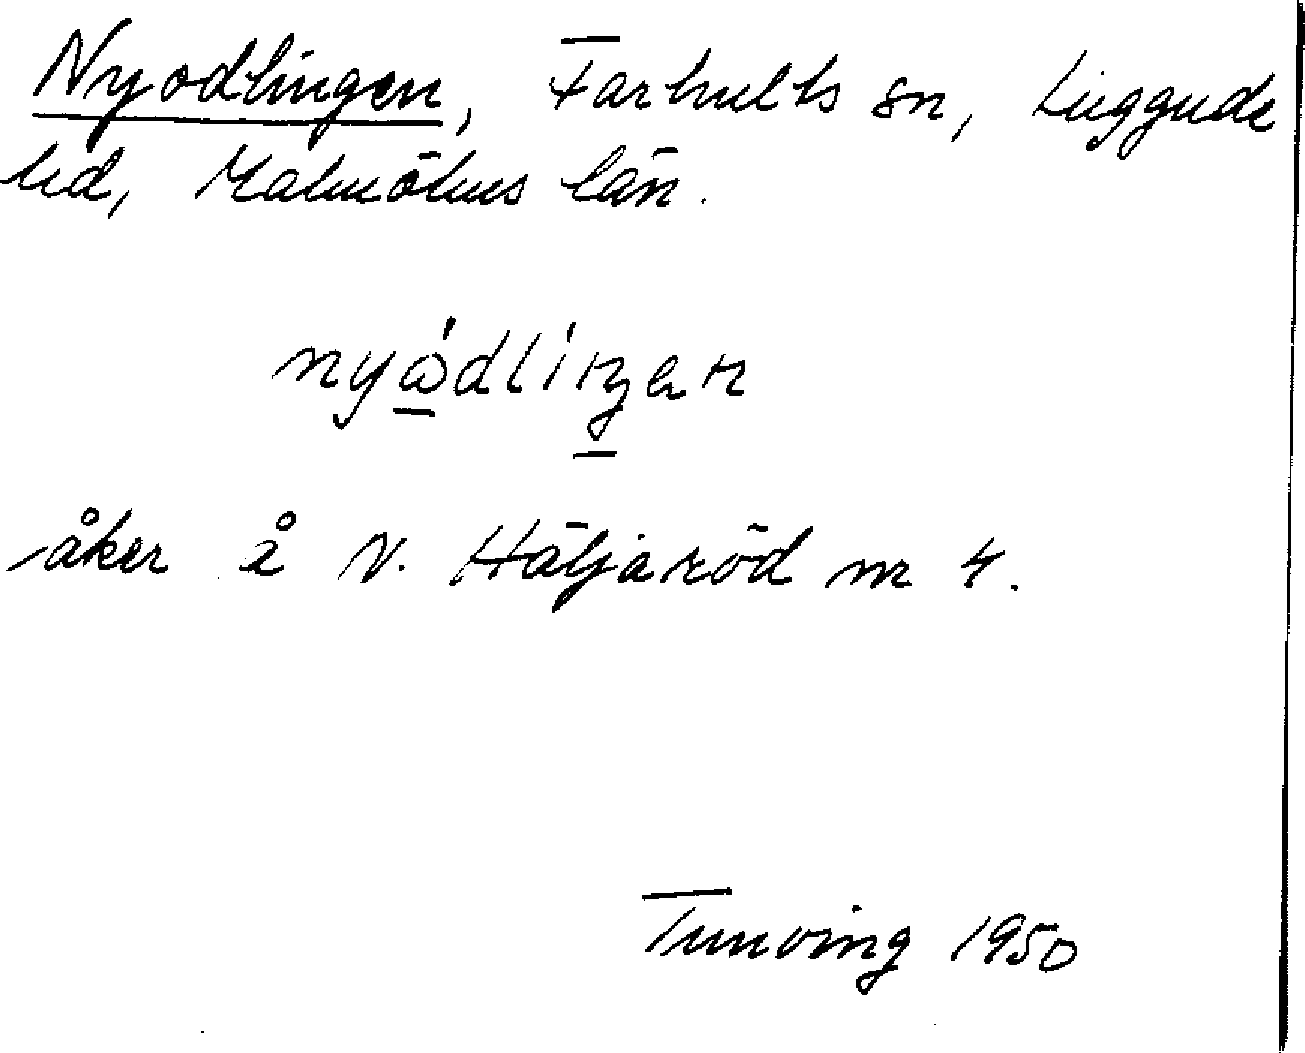 Nyodlingen, Farhults sn, Luggude
hd, Malmöhus län.
nyώ̲dlíŋ̲ən
åker å N. Häljaröd nr 4.
Tunving 1950